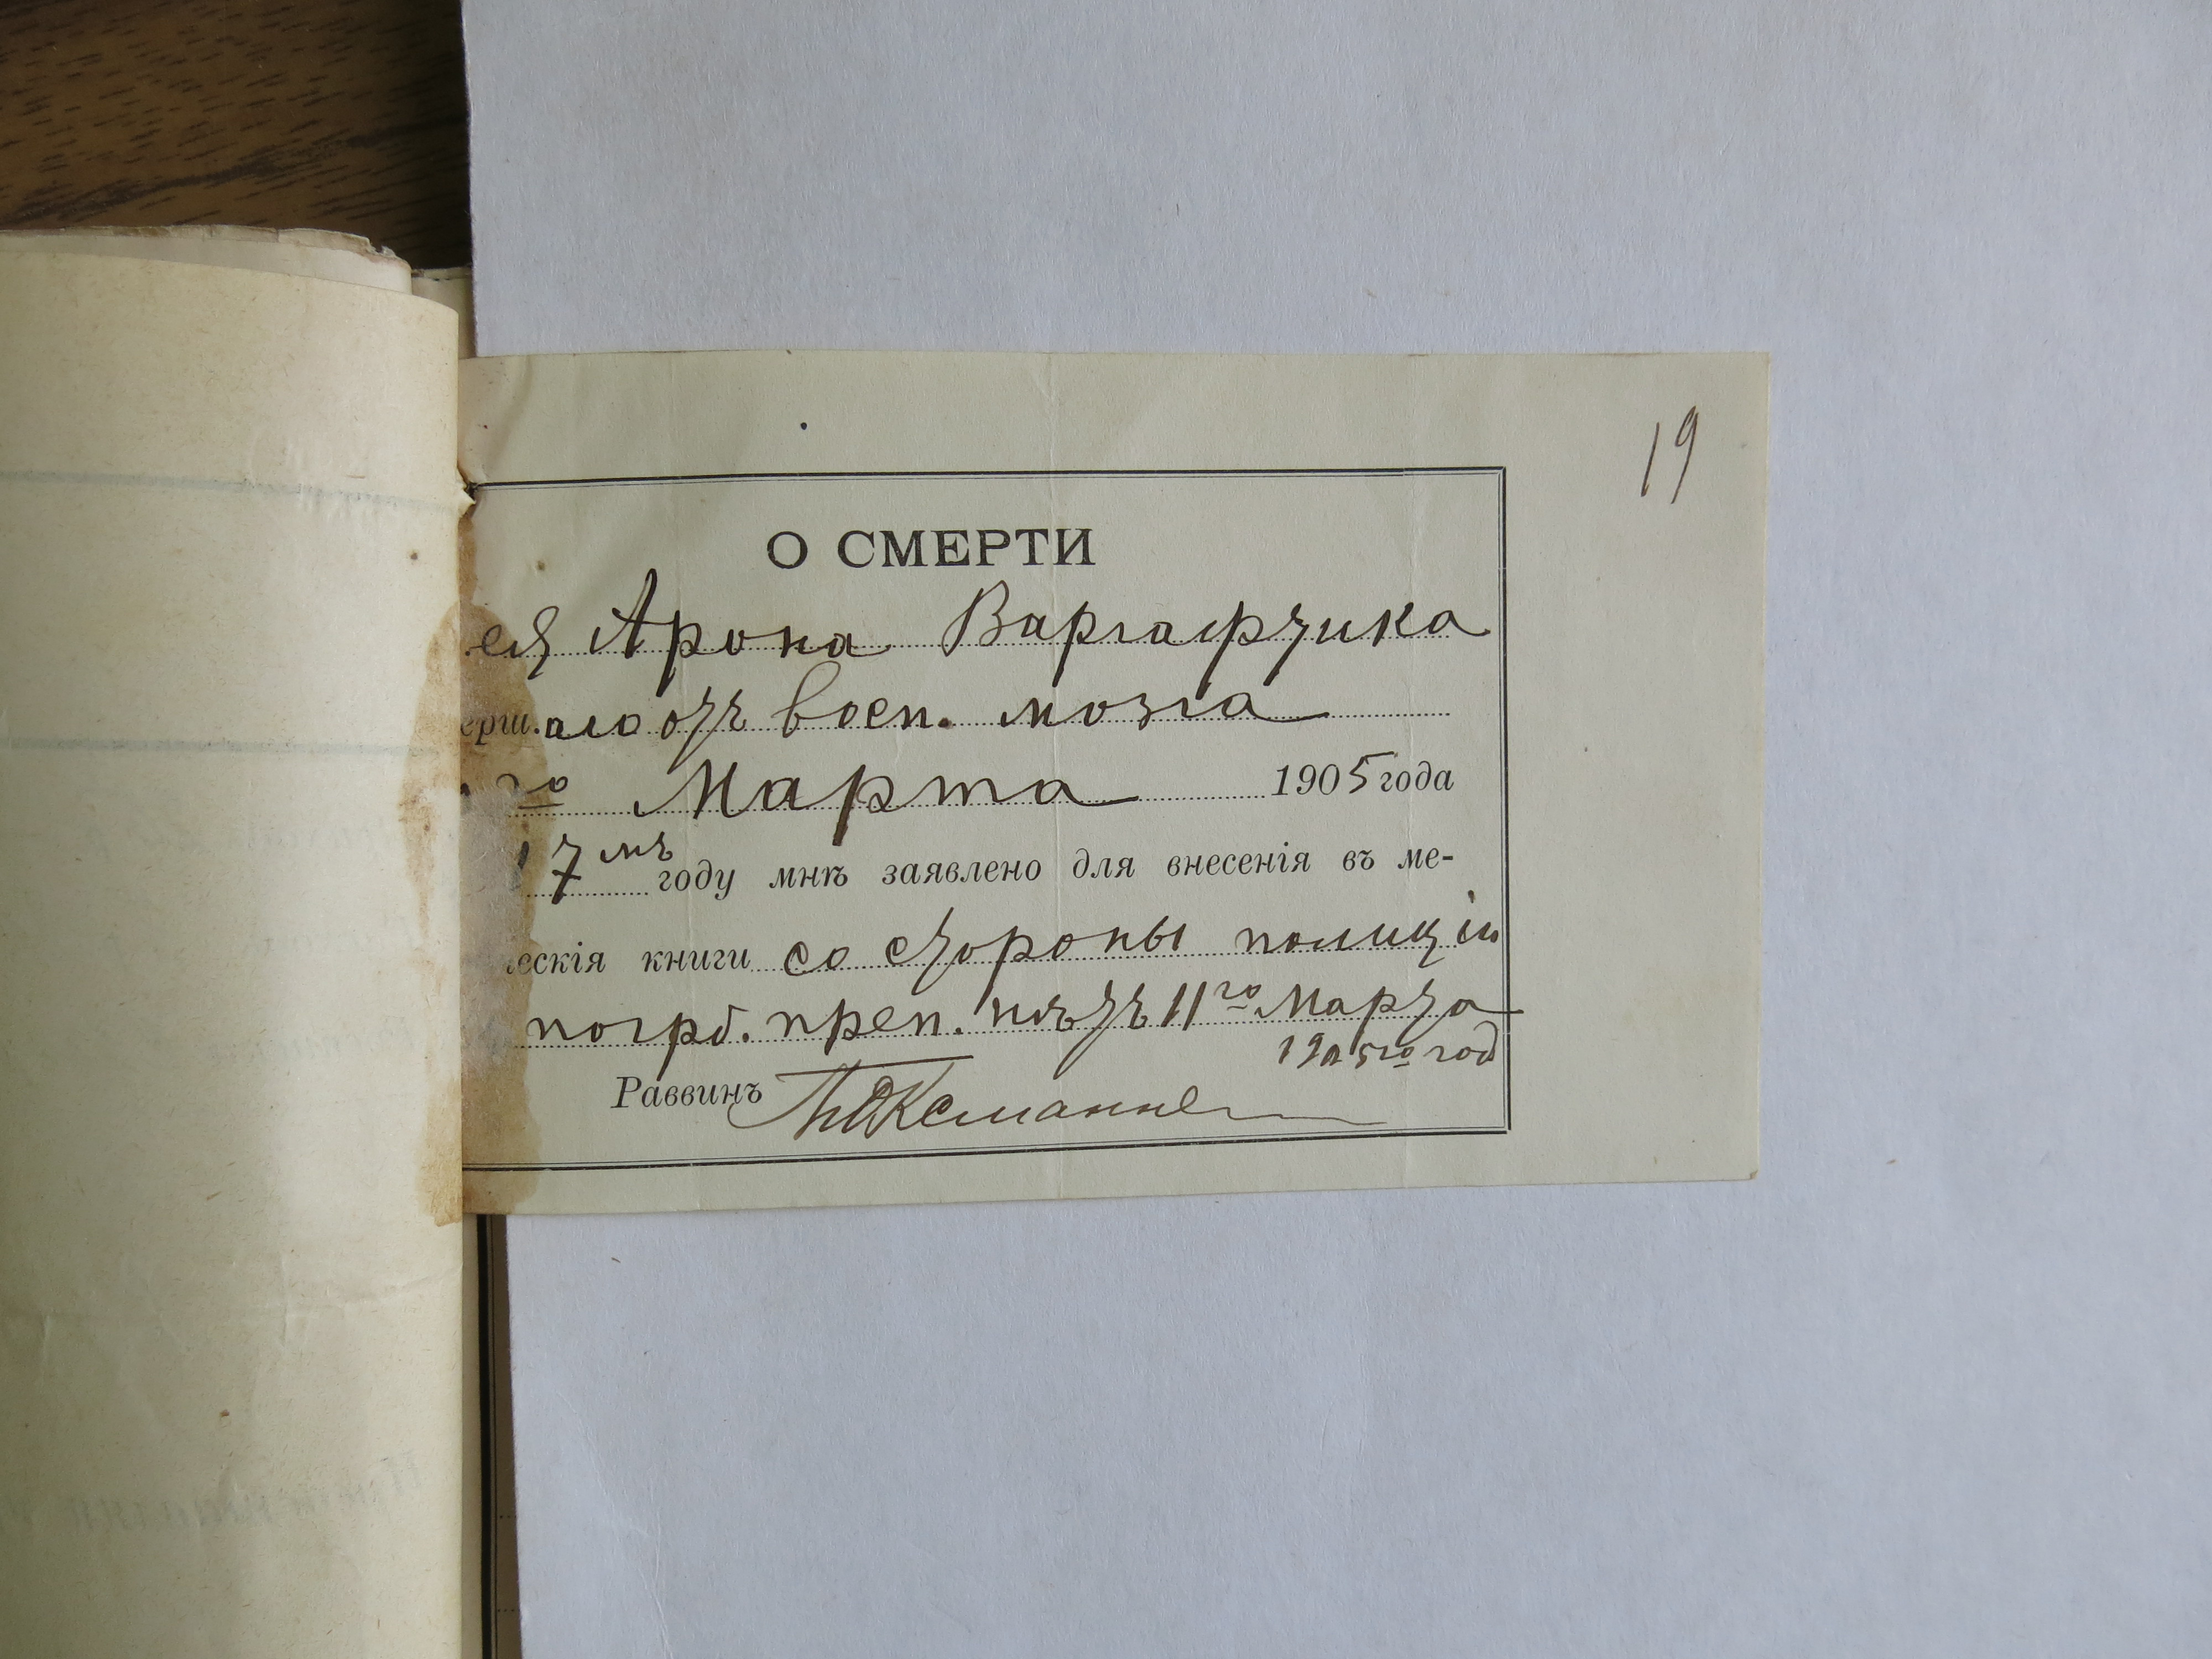 19
О СМЕРТИ
ея Арона Варгафтика
ерш.ало отъ восп. мозга
го Марта 1905 года
17мъ году мнѣ заявлено для внесенія въ ме-
ескія книги со стороны полиціи
погрб. преп. нѣтъ 11го Марта
1905го год
Раввинъ